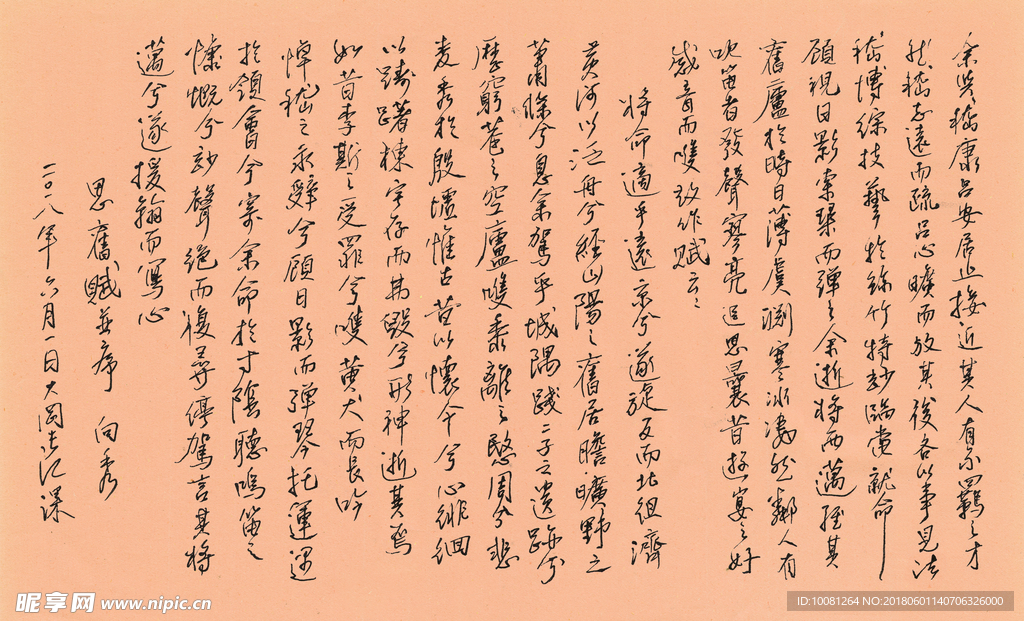 余与嵇康吕安居止接近其人有不羈之才
然嵇志遠而疏吕心曠而放其後各以事見法
嵇博綜技藝於絲竹特妙臨當就命
顧視日影索琴而弹之余逝將西邁經其
舊廬於時日薄虞渊寒冰凄然鄰人有
吹笛者發聲寥亮追思曩昔遊宴之好
感音而嘆故作賦云云
將命適乎遠京兮遂旋反而北徂濟
黄河以泛舟兮經山陽之舊居瞻曠野之
蕭條兮息余駕乎城隅踐二子之遺跡兮
歷窮巷之空廬嘆黍離之愍周兮悲
麦秀於殷墟惟古昔以懷今兮心徘徊
以躊躇棟宇存而弗毁兮形神逝其焉
如昔李斯之受罪兮嘆黄犬而長吟
悼嵇之永辭兮顧日影而弹琴托運遇
於領會兮寄余命於寸陰聽鳴笛之
慷慨兮妙聲绝而復尋停駕言其將
邁兮遂援翰而寫心
思舊賦並序 向秀
二〇一八年六月一日大岡志江课
昵享网 www.nipic.cn
ID:10081264 NO:20180601140706326000